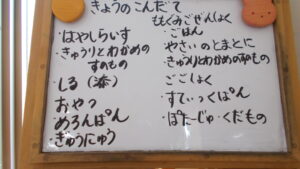 きょうのこんだて
・はやしらいす
・きゅうりとわかめの
すのもの
・しる(添)
おやつ
・めろんぱん
・ぎゅうにゅう
ももぐみごぜんしょく
・ごはん
・やさいのとまとに
・きゅうりとわかめの和もの
ごごしょく
・すてぃっくぱん
・ぽたーじゅ・くだもの